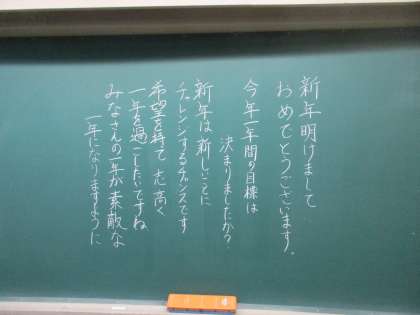 新年明けまして
おめでとうございます。
今年一年間の目標は
決まりましたか?
新年は新しいことに
チャレンジするチャンスです
希望を持て志高く
一年を過ごしたいですね
みなさんの一年が素敵な
一年になりますように